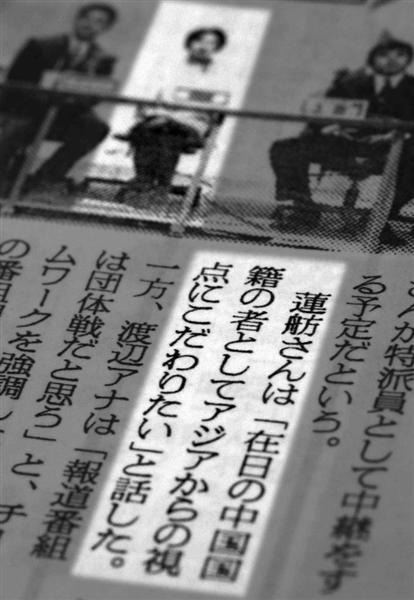 さんが特派員として中継をす
る予定だという。
蓮舫さんは「在日の中国国
籍の者としてアジアからの視
点にこだわりたい」と話した。
一方、渡辺アナは「報道番組
は団体戦だと思う」と、チー
ムワークを強調し
の番組